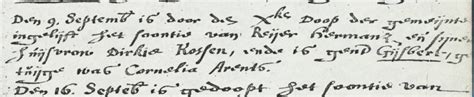 Den 9. Septemb is door de Xke Doop der gemeijnte
ingelijft het soontie van Reijer Hermanz en sijner
huijsvrou Dirkie Rossen, ende is gent Gijsbert, g
tuijge was Cornelia Arents.
Den 16. Septeb is gedoopt het soontie van